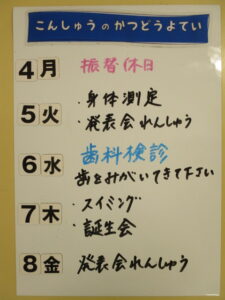 こんしゅうのかつどうよてい
4月 振替休日
・身体測定
5火 ・発表会れんしゅう
6水 歯科検診
歯をみがいてきて下さい
7木 ・スイミング
・誕生会
8金 発表会れんしゅう